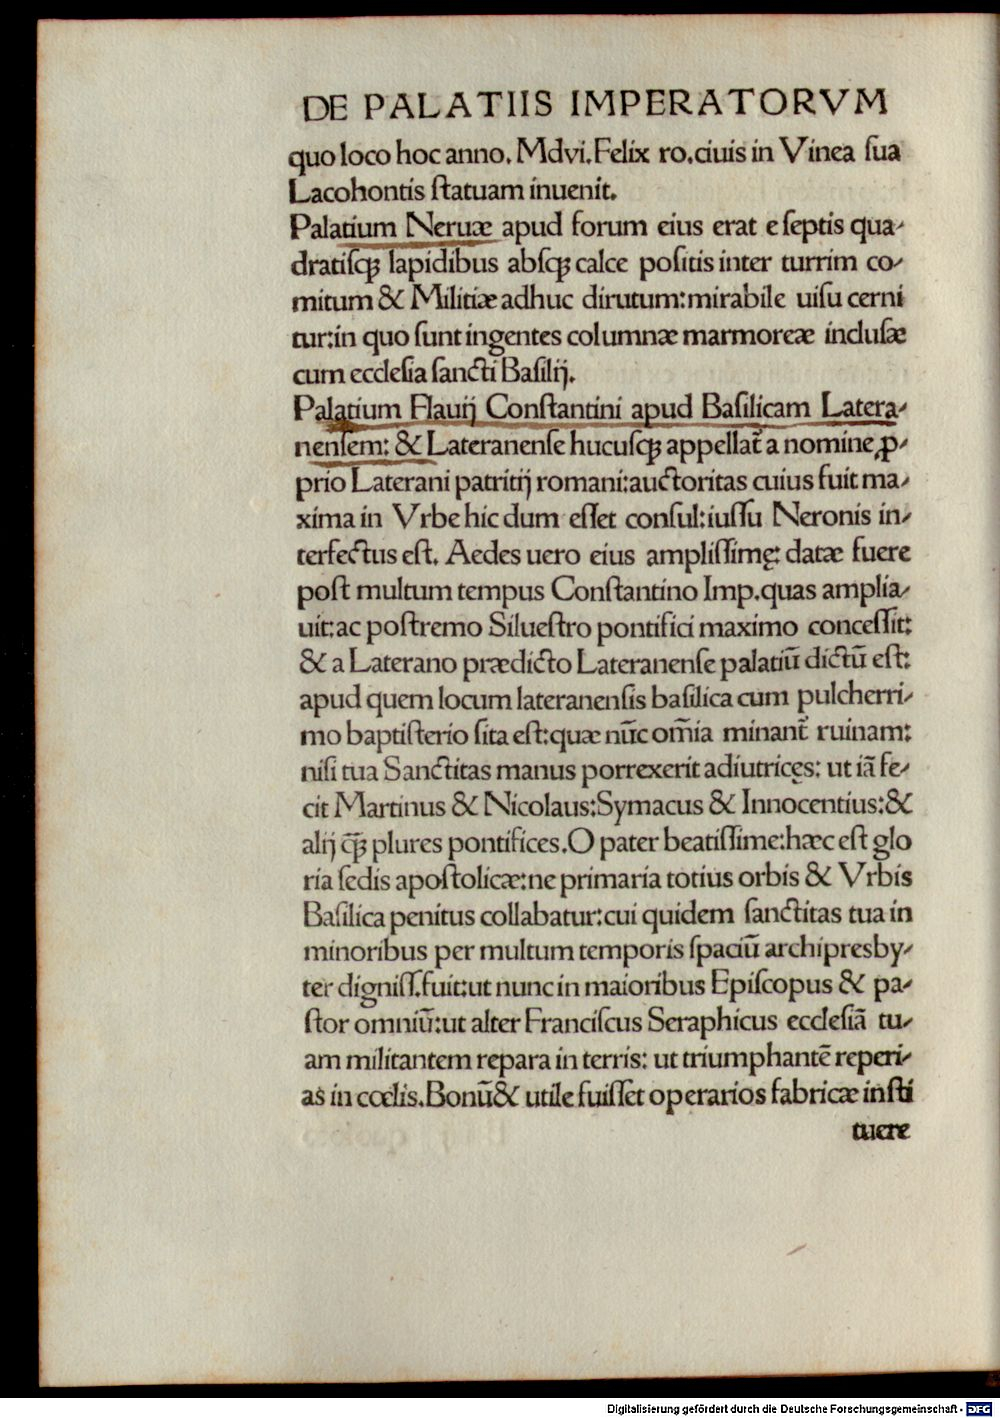 DE PALATIIS IMPERATORVM
quo loco hoc anno. Mdvi. Felix ro. ciuis in Vinea ſua
Lacohontis ſtatuam inuenit.
Palatium Neruæ apud forum eius erat e ſeptis qua-
dratiſqꝫ lapidibus abſqꝫ calce poſitis inter turrim co-
mitum & Militiæ adhuc dirutum: mirabile uiſu cerni
tur: in quo ſunt ingentes columnæ marmoreæ incluſæ
cum eccleſia ſancti Baſilij.
Palatium Flauij Conſtantini apud Baſilicam Latera-
nenſem: & Lateranenſe hucuſqꝫ appellat̃ a nomine ꝓ-
prio Laterani patritij romani: auctoritas cuius fuit ma-
xima in Vrbe hic dum eſſet conſul: iuſſu Neronis in-
terfectus eſt. Aedes uero eius ampliſſimę: datæ fuere
poſt multum tempus Conſtantino Imp. quas amplia-
uit: ac poſtremo Silueſtro pontifici maximo conceſſit:
& a Laterano prædicto Lateranenſe palatiũ dictũ eſt:
apud quem locum lateranenſis baſilica cum pulcherri-
mo baptiſterio ſita eſt: quæ nũc om̃ia minant̃ ruinam:
niſi tua Sanctitas manus porrexerit adiutricęs: ut iã fe-
cit Martinus & Nicolaus: Symacus & Innocentius: &
alij q̃ꝫ plures pontifices. O pater beatiſſime: hæc eſt glo
ria ſedis apoſtolicæ: ne primaria totius orbis & Vrbis
Baſilica penitus collabatur: cui quidem ſanctitas tua in
minoribus per multum temporis ſpaciũ archipresby-
ter digniſſ. fuit: ut nunc in maioribus Epiſcopus & pa-
ſtor omniũ: ut alter Franciſcus Seraphicus eccleſiã tu-
am militantem repara in terris: ut triumphantẽ reperi-
as in cœlis. Bonũ & utile fuiſſet operarios fabricæ inſti
tuere
Digitalisierung gefördert durch die Deutsche Forschungsgemeinschaft - DFG